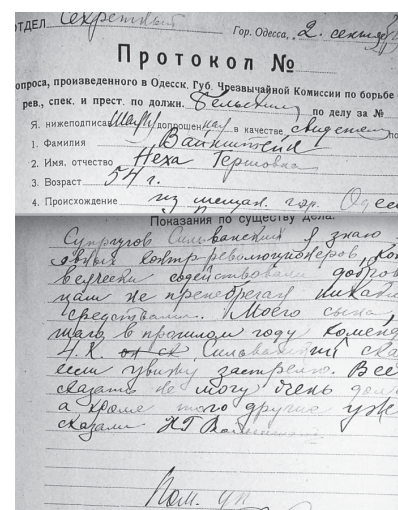 ОТДЕЛ Секретный
Гор. Одесса, 2. сентября
Протокол №
опроса, произведенного в Одесск. Губ. Чрезвычайной Комиссии по борьбе
рев., спек. и прест. по должн. Бельским по делу за №
Я. нижеподписав допрошенная в качестве свидетеля по
1. Фамилия Вайнштейн
2. Имя, отчество Неха Гершовна
3. Возраст 54 г.
4. Происхождение из мещан. гор. Одес
Показания по существу дела.
Супругов Сильванских я знаю
явных контр-революционеров, ко
всячески содействовали добров
цам не пренебрегая никаки
средствами. Моего сына
шаго в прошлом году коменд
Ч.К. Сильванский ска
если увижу застрелю. Все
сказать не могу очень дол
а кроме того другие уж
сказали НГ Вайнштейн
Пом. уп